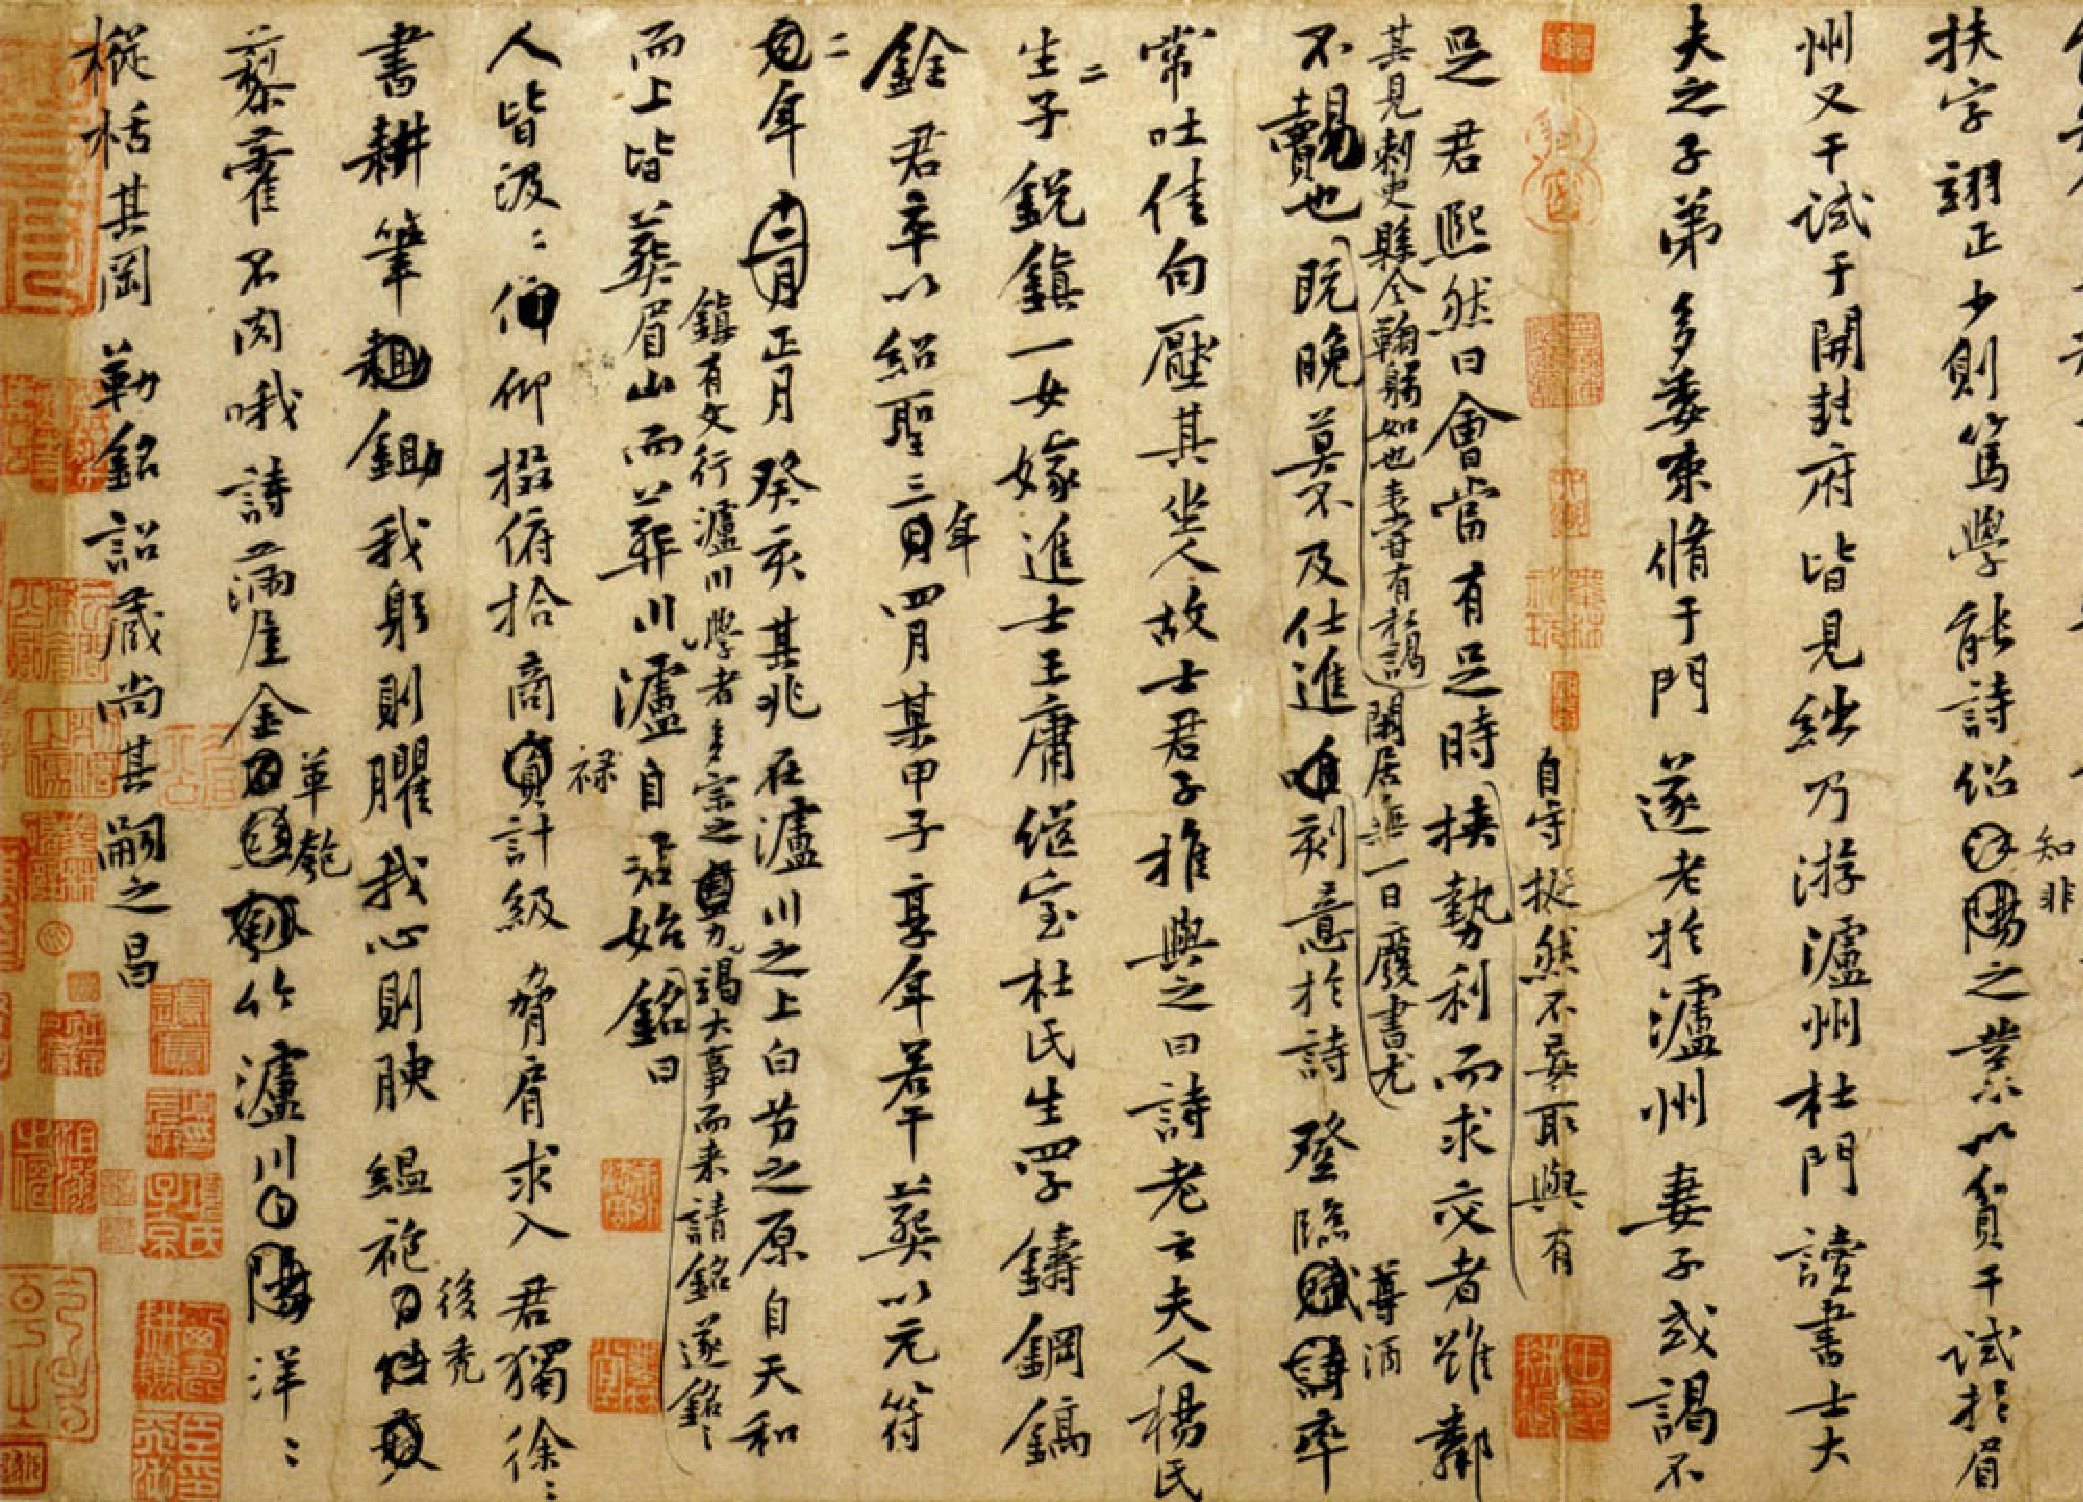 扶字翊正少則篤學能詩紹
知非
之業以貢干试於眉
州又干试于開封府皆見絀乃游瀘州杜門讀書士大
夫之子弟多委束脩于門遂老於瀘州妻子或謁不
自守挺然不妄取與有
足君熙然曰會當有足時挾勢利而求交者雖鄰
其見刺史縣令鞠躬如也未嘗有私謁閑居無一日廢書尤
不覿也既晚莫不及仕進唯刻意於詩登臨
尊酒
率
常吐佳句壓其坐人故士君子推與之曰詩老云夫人楊氏
生二子銳鎮一女嫁進士王庸継室杜氏生四子鑄鋼鎬
銓君卒以紹聖三年四月某甲子享年若干葬以元符
二年正月癸亥其兆在瀘川之上白芀之原自天和
鎮有文行瀘川學者多宗之竭大事而来請銘遂銘之
而上皆葬眉山而葬川瀘自君始銘曰
人皆汲〻仰掇俯拾商祿計級脅肩求入君獨徐〻
書耕筆鋤我躬則臞我心則腴緼袍後禿
藜藿不肉哦詩滿屋金革匏竹瀘川洋〻
樅栝其岡勒銘詔藏尚其嗣之昌